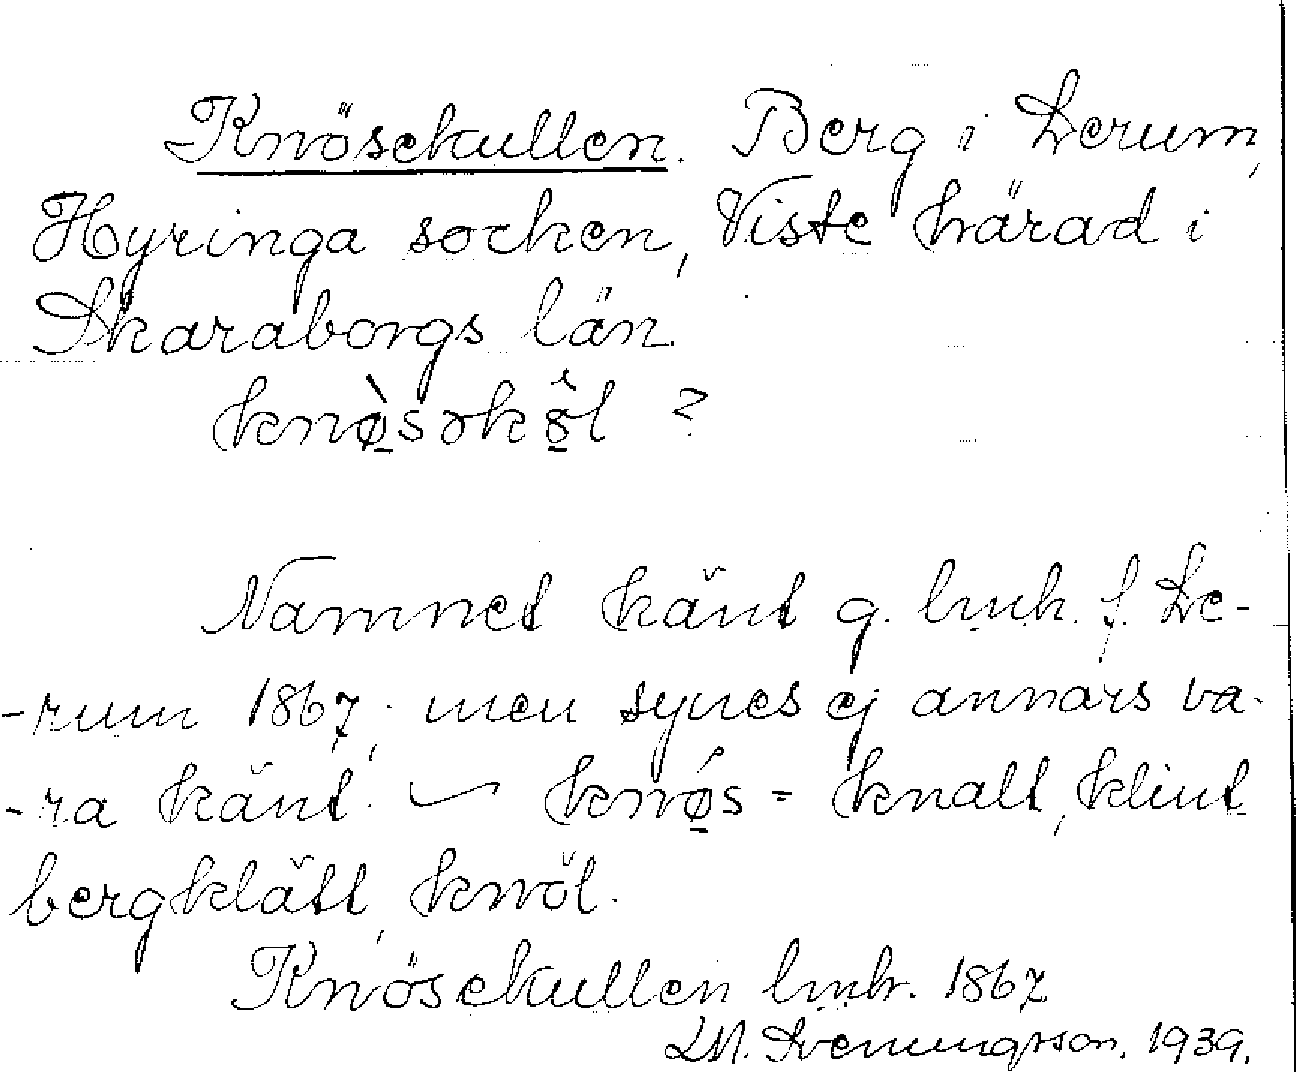 Knösekullen. Berg i Lerum,
Hyringa socken, Viste härad i
Skaraborgs län.
knø̀sək8̂l ?
Namnet känt g. lmk. f. Le-
-rum 1867, men synes ej annars va-
-ra känt. — knǿs = knalt, klint
bergklätt, knöl.
Knösekullen lmk. 1867
LM. Svenungsson. 1939.